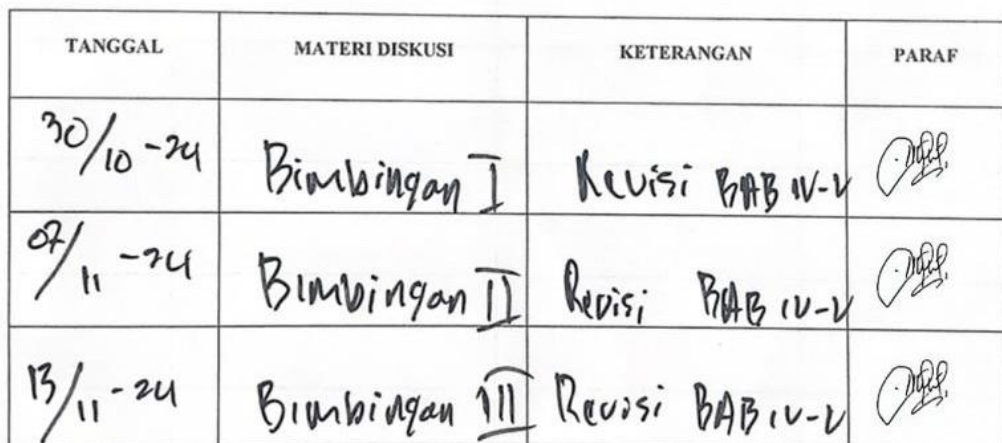 TANGGAL MATERI DISKUSI KETERANGAN PARAF
30/10-24 Bimbingan I Revisi BAB IV-V
07/11-24 Bimbingan II Revisi BAB IV-V
13/11-24 Bimbingan III Revisi BAB IV-V